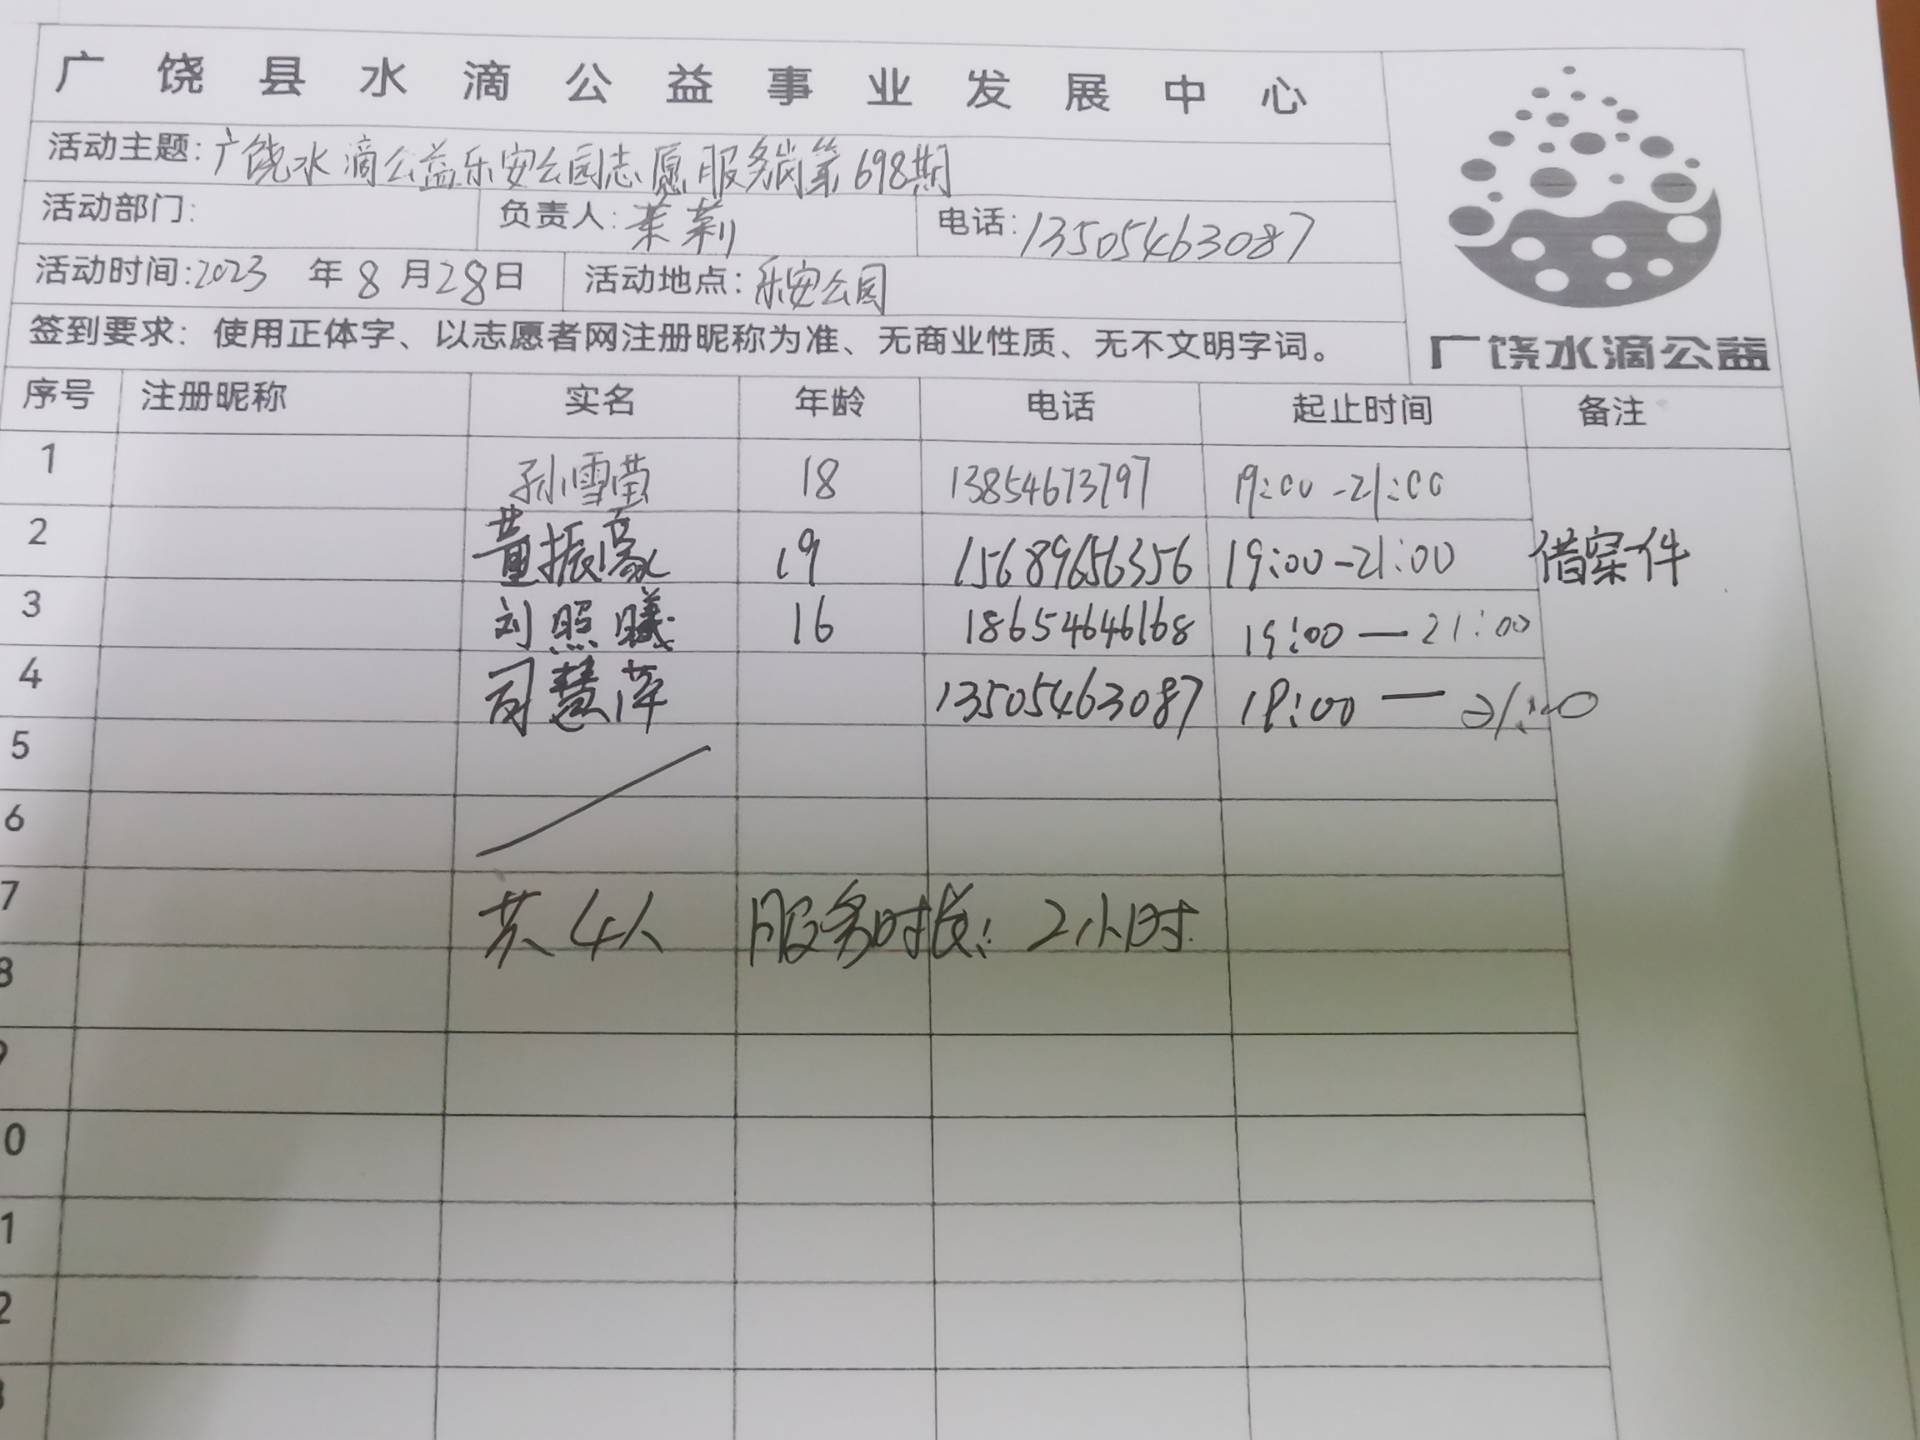 广饶县水滴公益事业发展中心
活动主题:广饶水滴公益乐安公园志愿服务岗第698期
活动部门: 负责人:茉莉 电话:13505463087
活动时间:2023年8月28日 活动地点:乐安公园
签到要求：使用正体字、以志愿者网注册昵称为准、无商业性质、无不文明字词。
广饶水滴公益
序号 注册昵称 实名 年龄 电话 起止时间 备注
1 孙雪莹 18 13854673797 19:00-21:00
2 董振豪 19 15689656356 19:00-21:00 借案件
3 刘照曦 16 18654646168 19:00—21:00
4 司慧萍 13505463087 19:00—21:00
5
6
7 共4人 服务时长：2小时
8
9
0
1
2
3